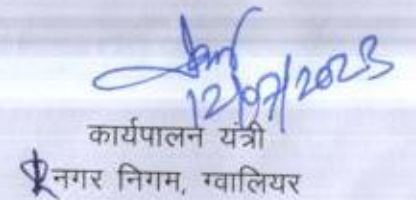 12/07/2023
कार्यपालन यंत्री
नगर निगम, ग्वालियर